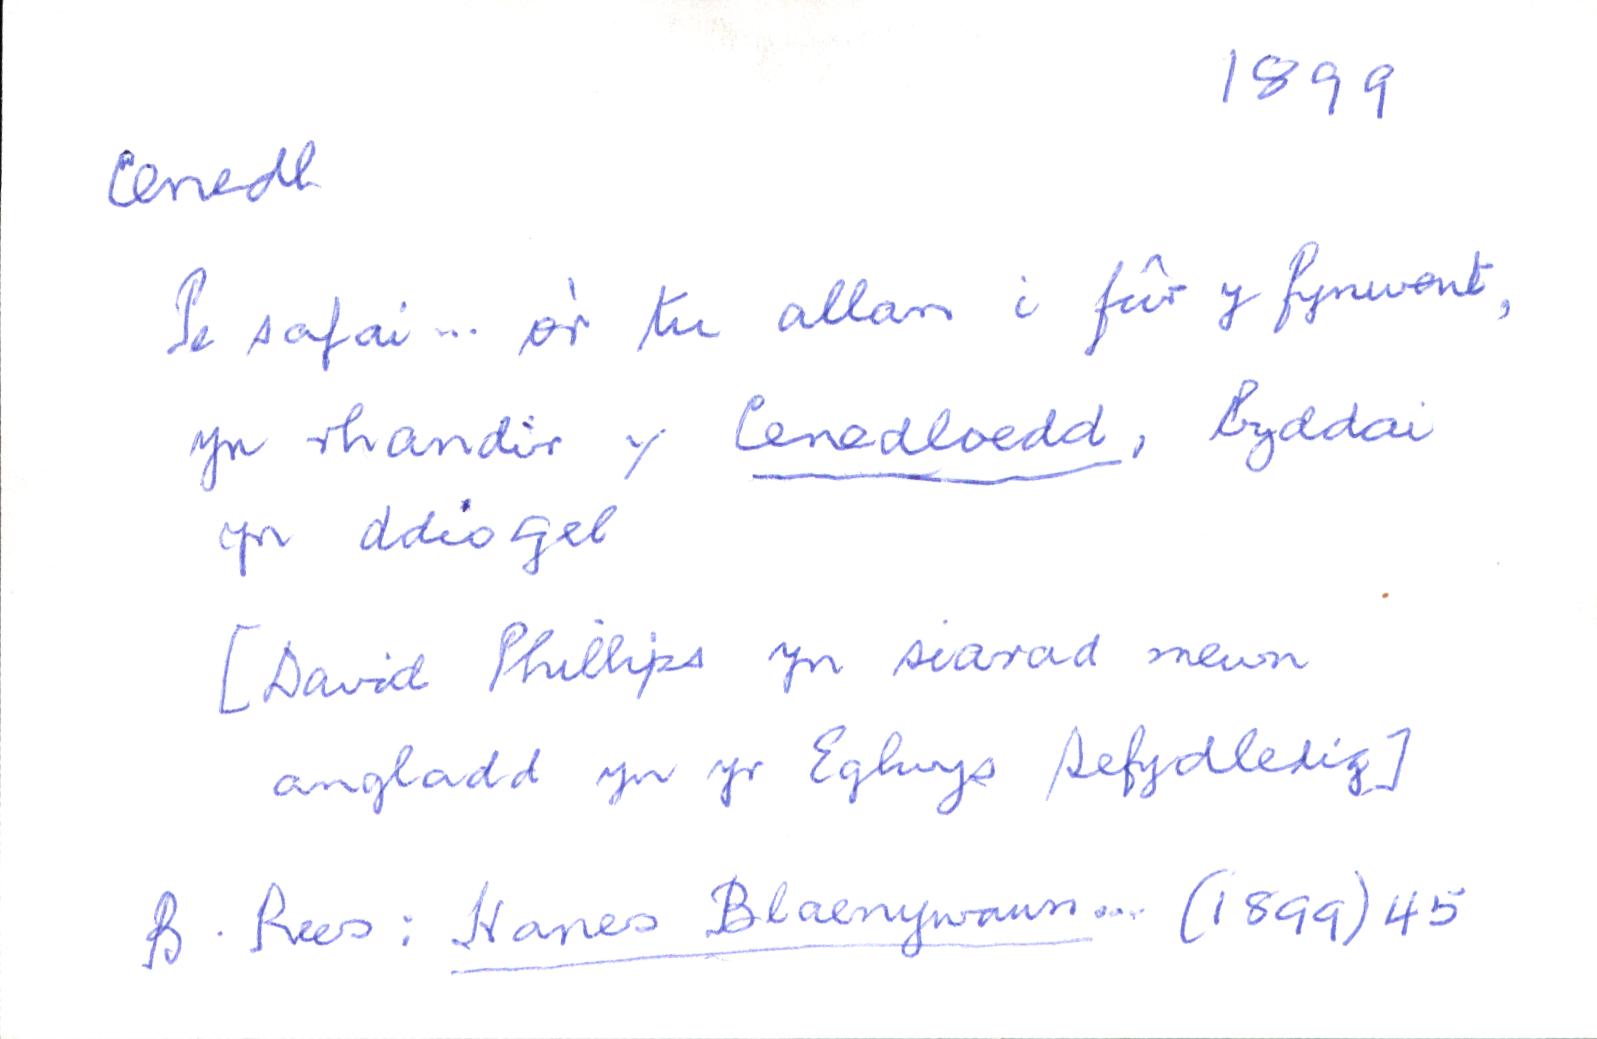 1899
Cenedl
Pe safai ... o'r tu allan i fûr y fynwent,
yn rhandir y Cenedloedd, byddai
yn ddiogel
[David Phillips yn siarad mewn
angladd yn yr Eglwys Sefydledig]
B. Rees: Hanes Blaenywaun ... (1899) 45